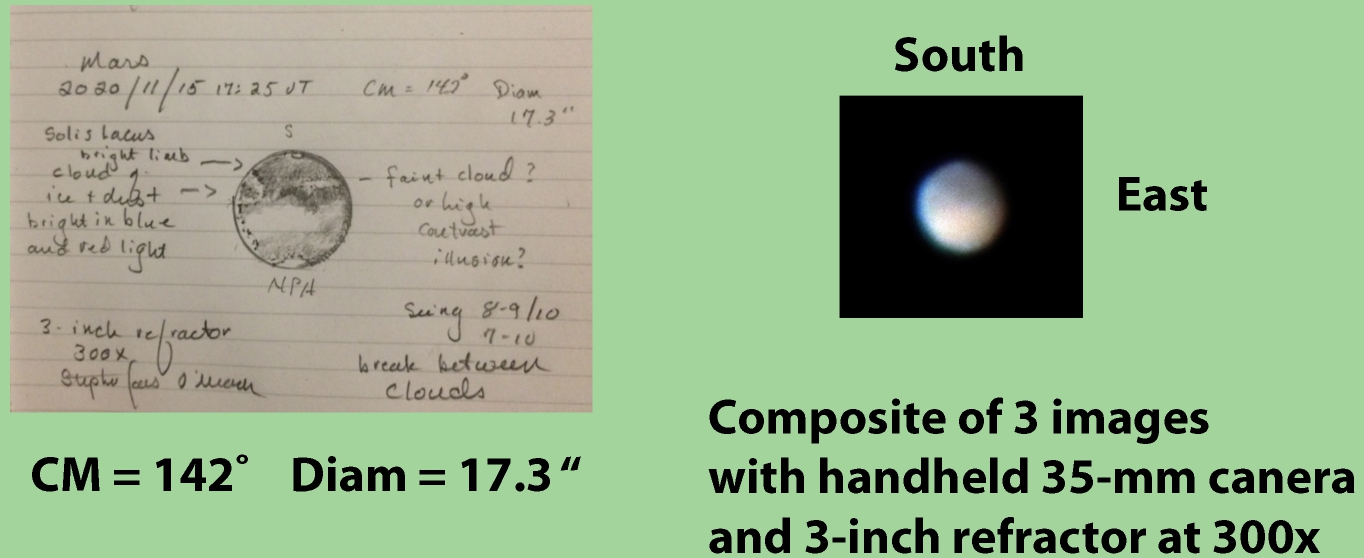 Mars
2020/11/15 17:25 UT CM = 142° Diam
17.3"
Solis Lacus
bright limb
cloud
ice + dust
bright in blue
and red light
S
faint cloud?
or high
contrast
illusion?
NPH
Seing 8-9/10
7-10
break between
clouds
3-inch refractor
300x
O'Meara
CM = 142° Diam = 17.3 “
South
East
Composite of 3 images
with handheld 35-mm canera
and 3-inch refractor at 300x